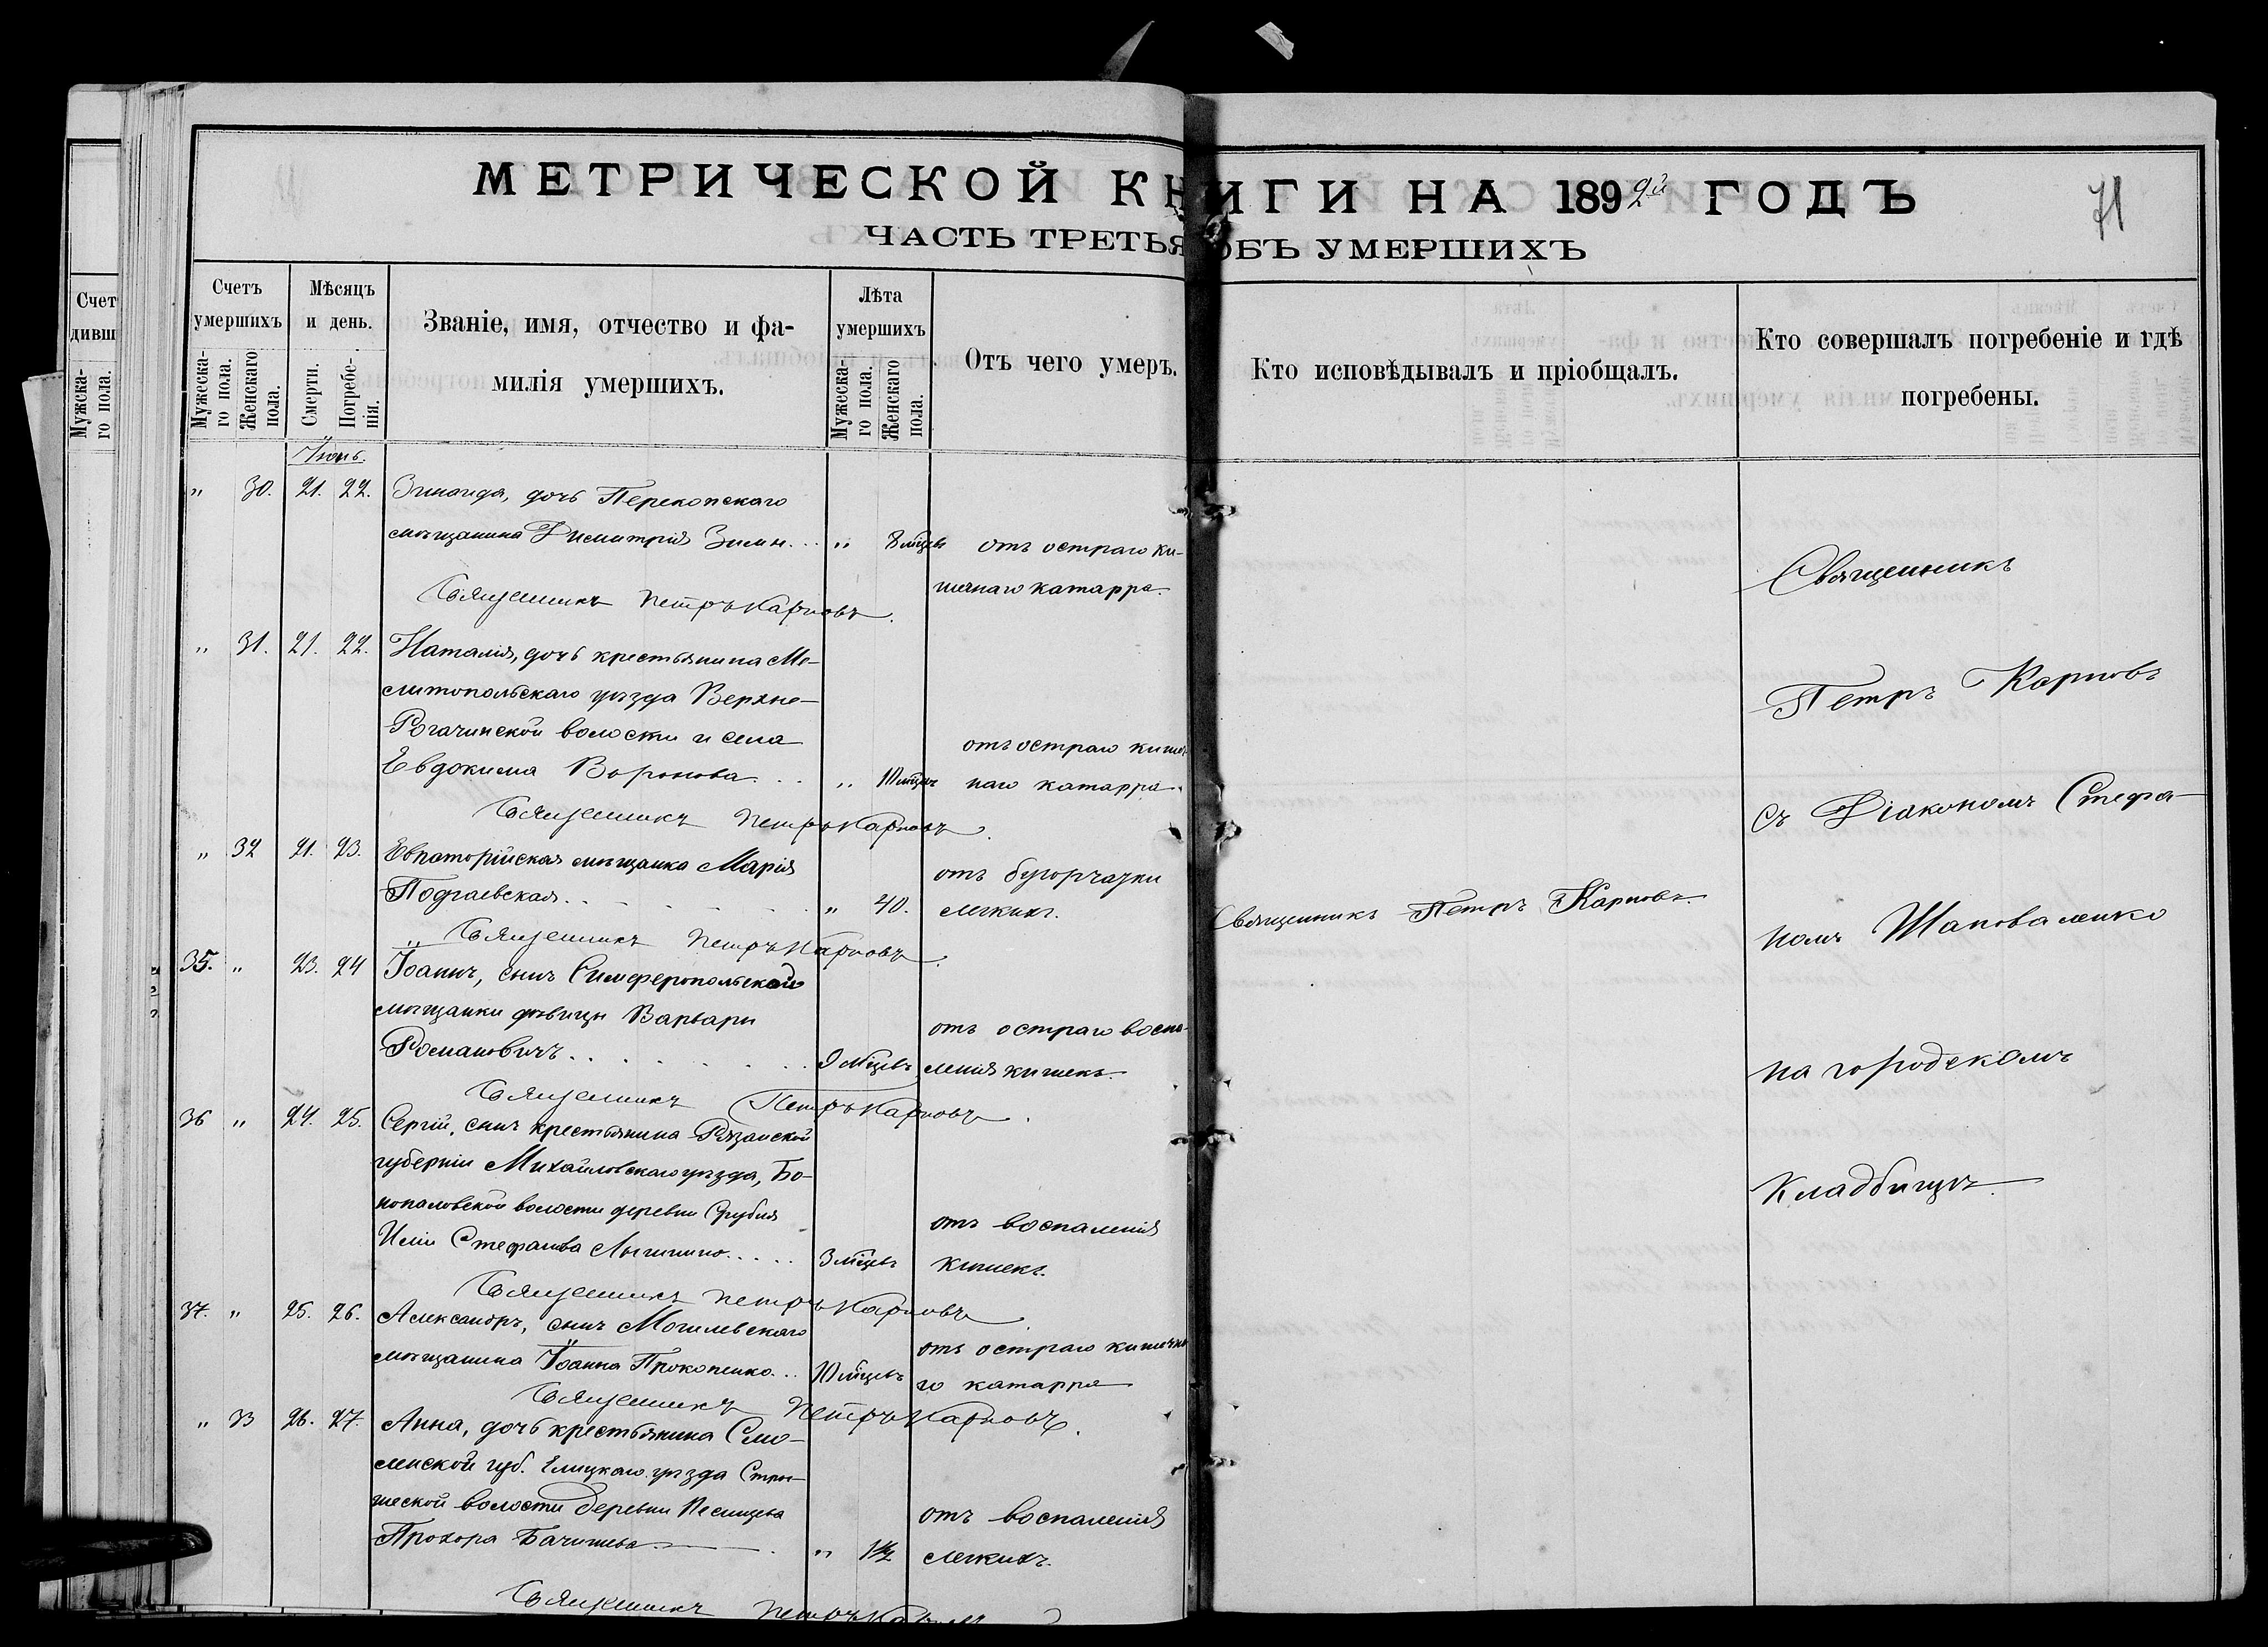 МЕТРИЧЕСКОЙ КНИГИ НА 1892й ГОДЪ
71
ЧАСТЬ ТРЕТЬЯ ОБЪ УМЕРШИХЪ
Счетъ умершихъ
Мужеска-го пола.
Женскаго пола.
Мѣсяцъ и день.
Смерти.
Погребе-нія.
Званіе, имя, отчество и фа-
милія умершихъ.
Лѣта умершихъ
Мужеска-го пола.
Женскаго пола.
Отъ чего умеръ.
Кто исповѣдывалъ и пріобщалъ.
Кто совершалъ погребеніе и гдѣ
погребены.
Счет
дивш
Мужска-
го пола.
Іюнь.
" 30. 21. 22. Зинаида, дочь Перекопскаго
мѣщанина Димитрія Зимн... " 8 мѣцевъ отъ остраго ки-
шечнаго катарра.
Священникъ Петръ Карповъ.
" 31. 21. 22. Наталія, дочь крестьянина Ме-
литопольскаго уѣзда Верхне-
Рогачинской волости и села
Евдокима Воронова... " 10 мѣцевъ отъ остраго кишеч-
наго катарра.
Священникъ Петръ Карповъ.
" 32 21. 23. Евпаторійская мѣщанка Марія
Подгаевская. " 40. отъ бугорчатки
легкихъ.
Священникъ Петръ Карповъ.
Священникъ Петръ Карповъ.
35. " 23. 24 Іоаннъ, сынъ Симферопольской
мѣщанки дѣвицы Варвары
Романовичъ. 9 мѣцевъ отъ остраго воспа-
ленія кишекъ.
Священникъ Петръ Карповъ.
36 " 24. 25. Сергій, сынъ крестьянина Рязанской
губерніи Михайловскаго уѣзда,
волости деревни
Иліи Стефанова 3 мѣцевъ отъ воспаленія
кишекъ.
Священникъ Петръ Карповъ
37. " 25. 26. Александръ, сынъ Могилевскаго
мѣщанина Іоанна Прокопенко... 10 мѣцевъ отъ остраго кишечна
го катарра
Священникъ Петръ Карповъ.
" 33 26. 27. Анна, дочь крестьянина Смо-
ленской губ. уѣзда
волости деревни
Прохора " 1½ отъ воспаленія
легкихъ.
Священникъ Петръ Карповъ
Священникъ
Петръ Карповъ
съ Діакономъ Стефа-
номъ Шаповаленко
на городскомъ
кладбищѣ.